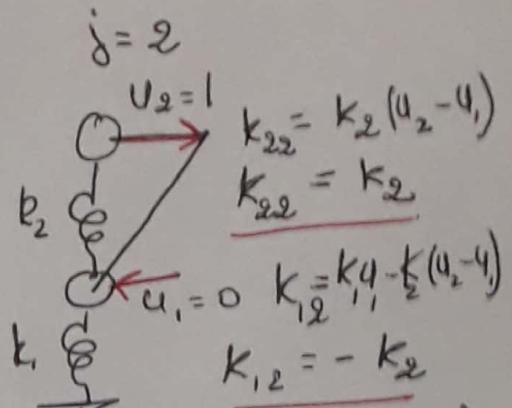 j = 2
u₂ = 1
k₂₂ = k₂ (u₂ - u₁)
k₂₂ = k₂
k₂
u₁ = 0
k₁₂ = k₁u₁ - k₂ (u₂ - u₁)
k₁
k₁₂ = - k₂